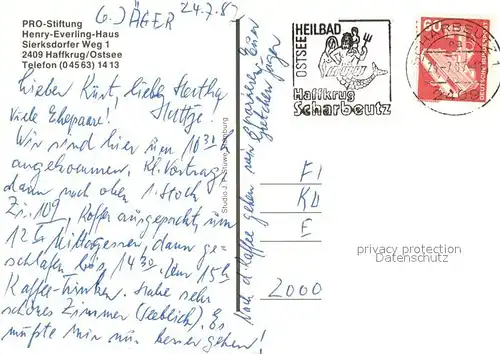 PRO-Stiftung
Henry-Everling-Haus
Sierksdorfer Weg 1
2409 Haffkrug/Ostsee
Telefon (04563) 1413
G. JÄGER 24.7.8
Lieber Kurt, liebe Hertha
Viele Ehepaare!
Wir sind hier um 10 30 h
angekommen. Kl. Vortrag
dann nach oben 1. Stock
Zi. 109, Koffer ausgepackt, um
12 h Mittagessen, dann ge-
schlafen bis 14 30. Um 15 h
Kaffee-Trinken. Habe sehr
schönes Zimmer (Seeblick). Es
müßte mir nun besser gehen!
Nach d. Kaffee gehen wir spazieren. Euer
Gretchen Jäger
Studio J.
OSTSEE
HEILBAD
Haffkrug
Scharbeutz
60
DEUTSCHE BUNDESPOST
FI
KU
E
2000
privacy protection
Datenschutz